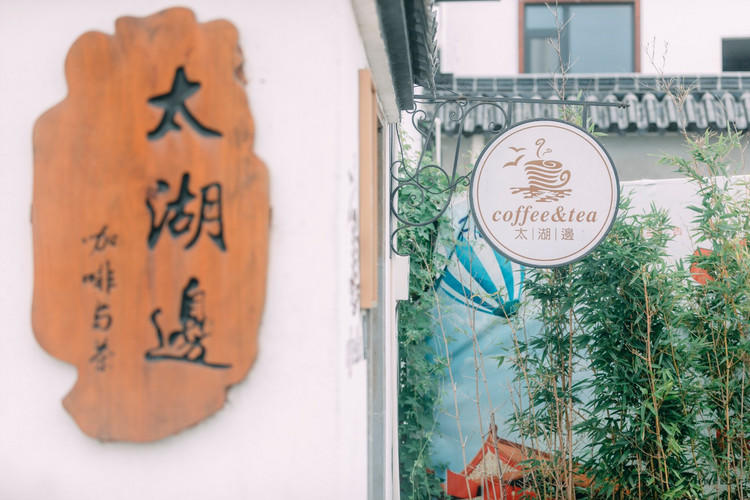 太湖邊
咖啡与茶
coffee&tea
太|湖|邊